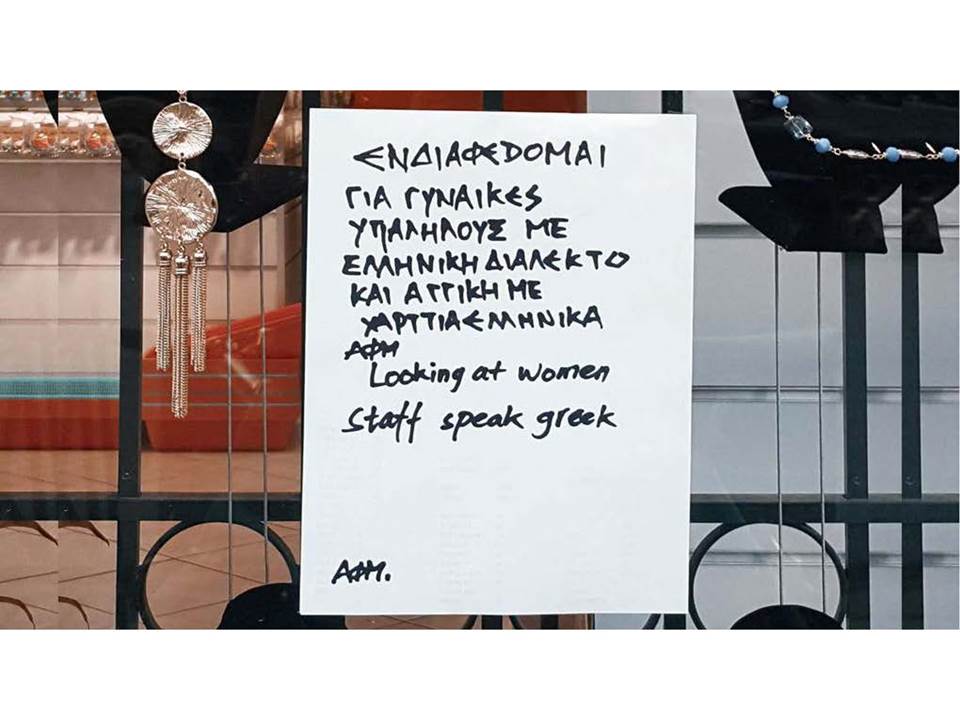 ΕΝΔΙΑΦΕDΟΜΑΙ
ΓΙΑ ΓΥΝΑΙΚΕΣ
ΥΠΑΛΗΛΟΥΣ ΜΕ
ΕΛΛΗΝΙΚΗ ΔΙΑΛΕΚΤΟ
ΚΑΙ ΑΤΤΙΚΗ ΜΕ
ΧΑΡΤΤΙΑ ΕΛΛΗΝΙΚΑ
ΑΦΜ
Looking at women
Staff speak greek
ΑΦΜ.